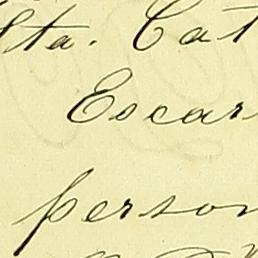 Sta. Cat
Escar
person